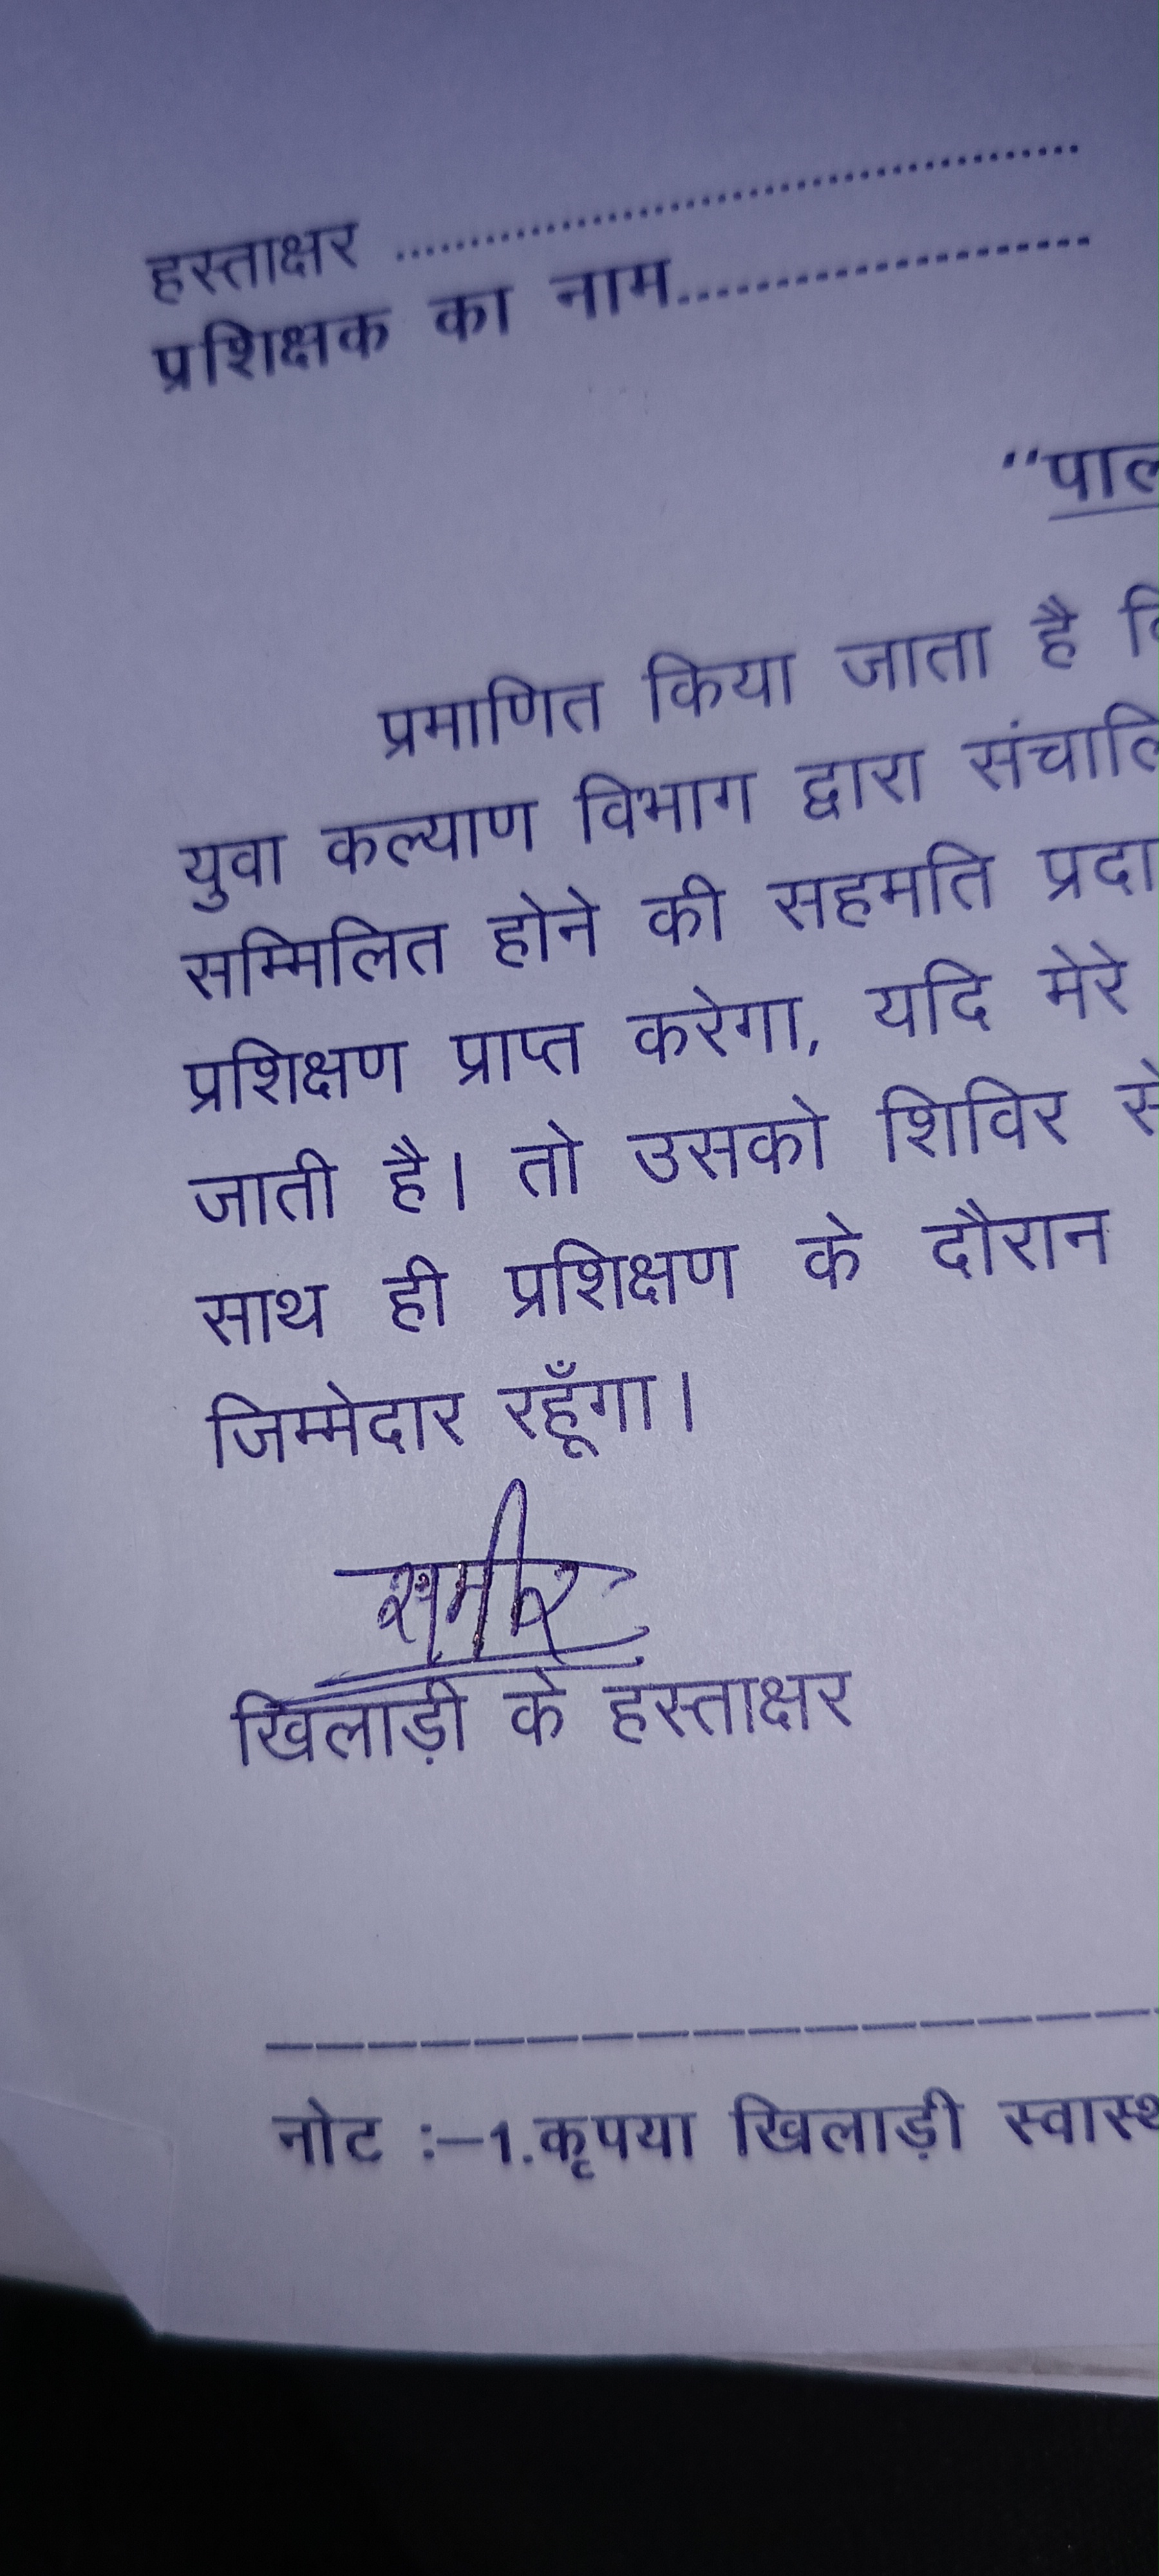 हस्ताक्षर ........................................
प्रशिक्षक का नाम........................
"पाल
प्रमाणित किया जाता है
युवा कल्याण विभाग द्वारा संचालि
सम्मिलित होने की सहमति प्रदा
प्रशिक्षण प्राप्त करेगा, यदि मेरे
जाती है। तो उसको शिविर से
साथ ही प्रशिक्षण के दौरान
जिम्मेदार रहूँगा।
समीर
खिलाड़ी के हस्ताक्षर
नोट :–1.कृपया खिलाड़ी स्वास्थ